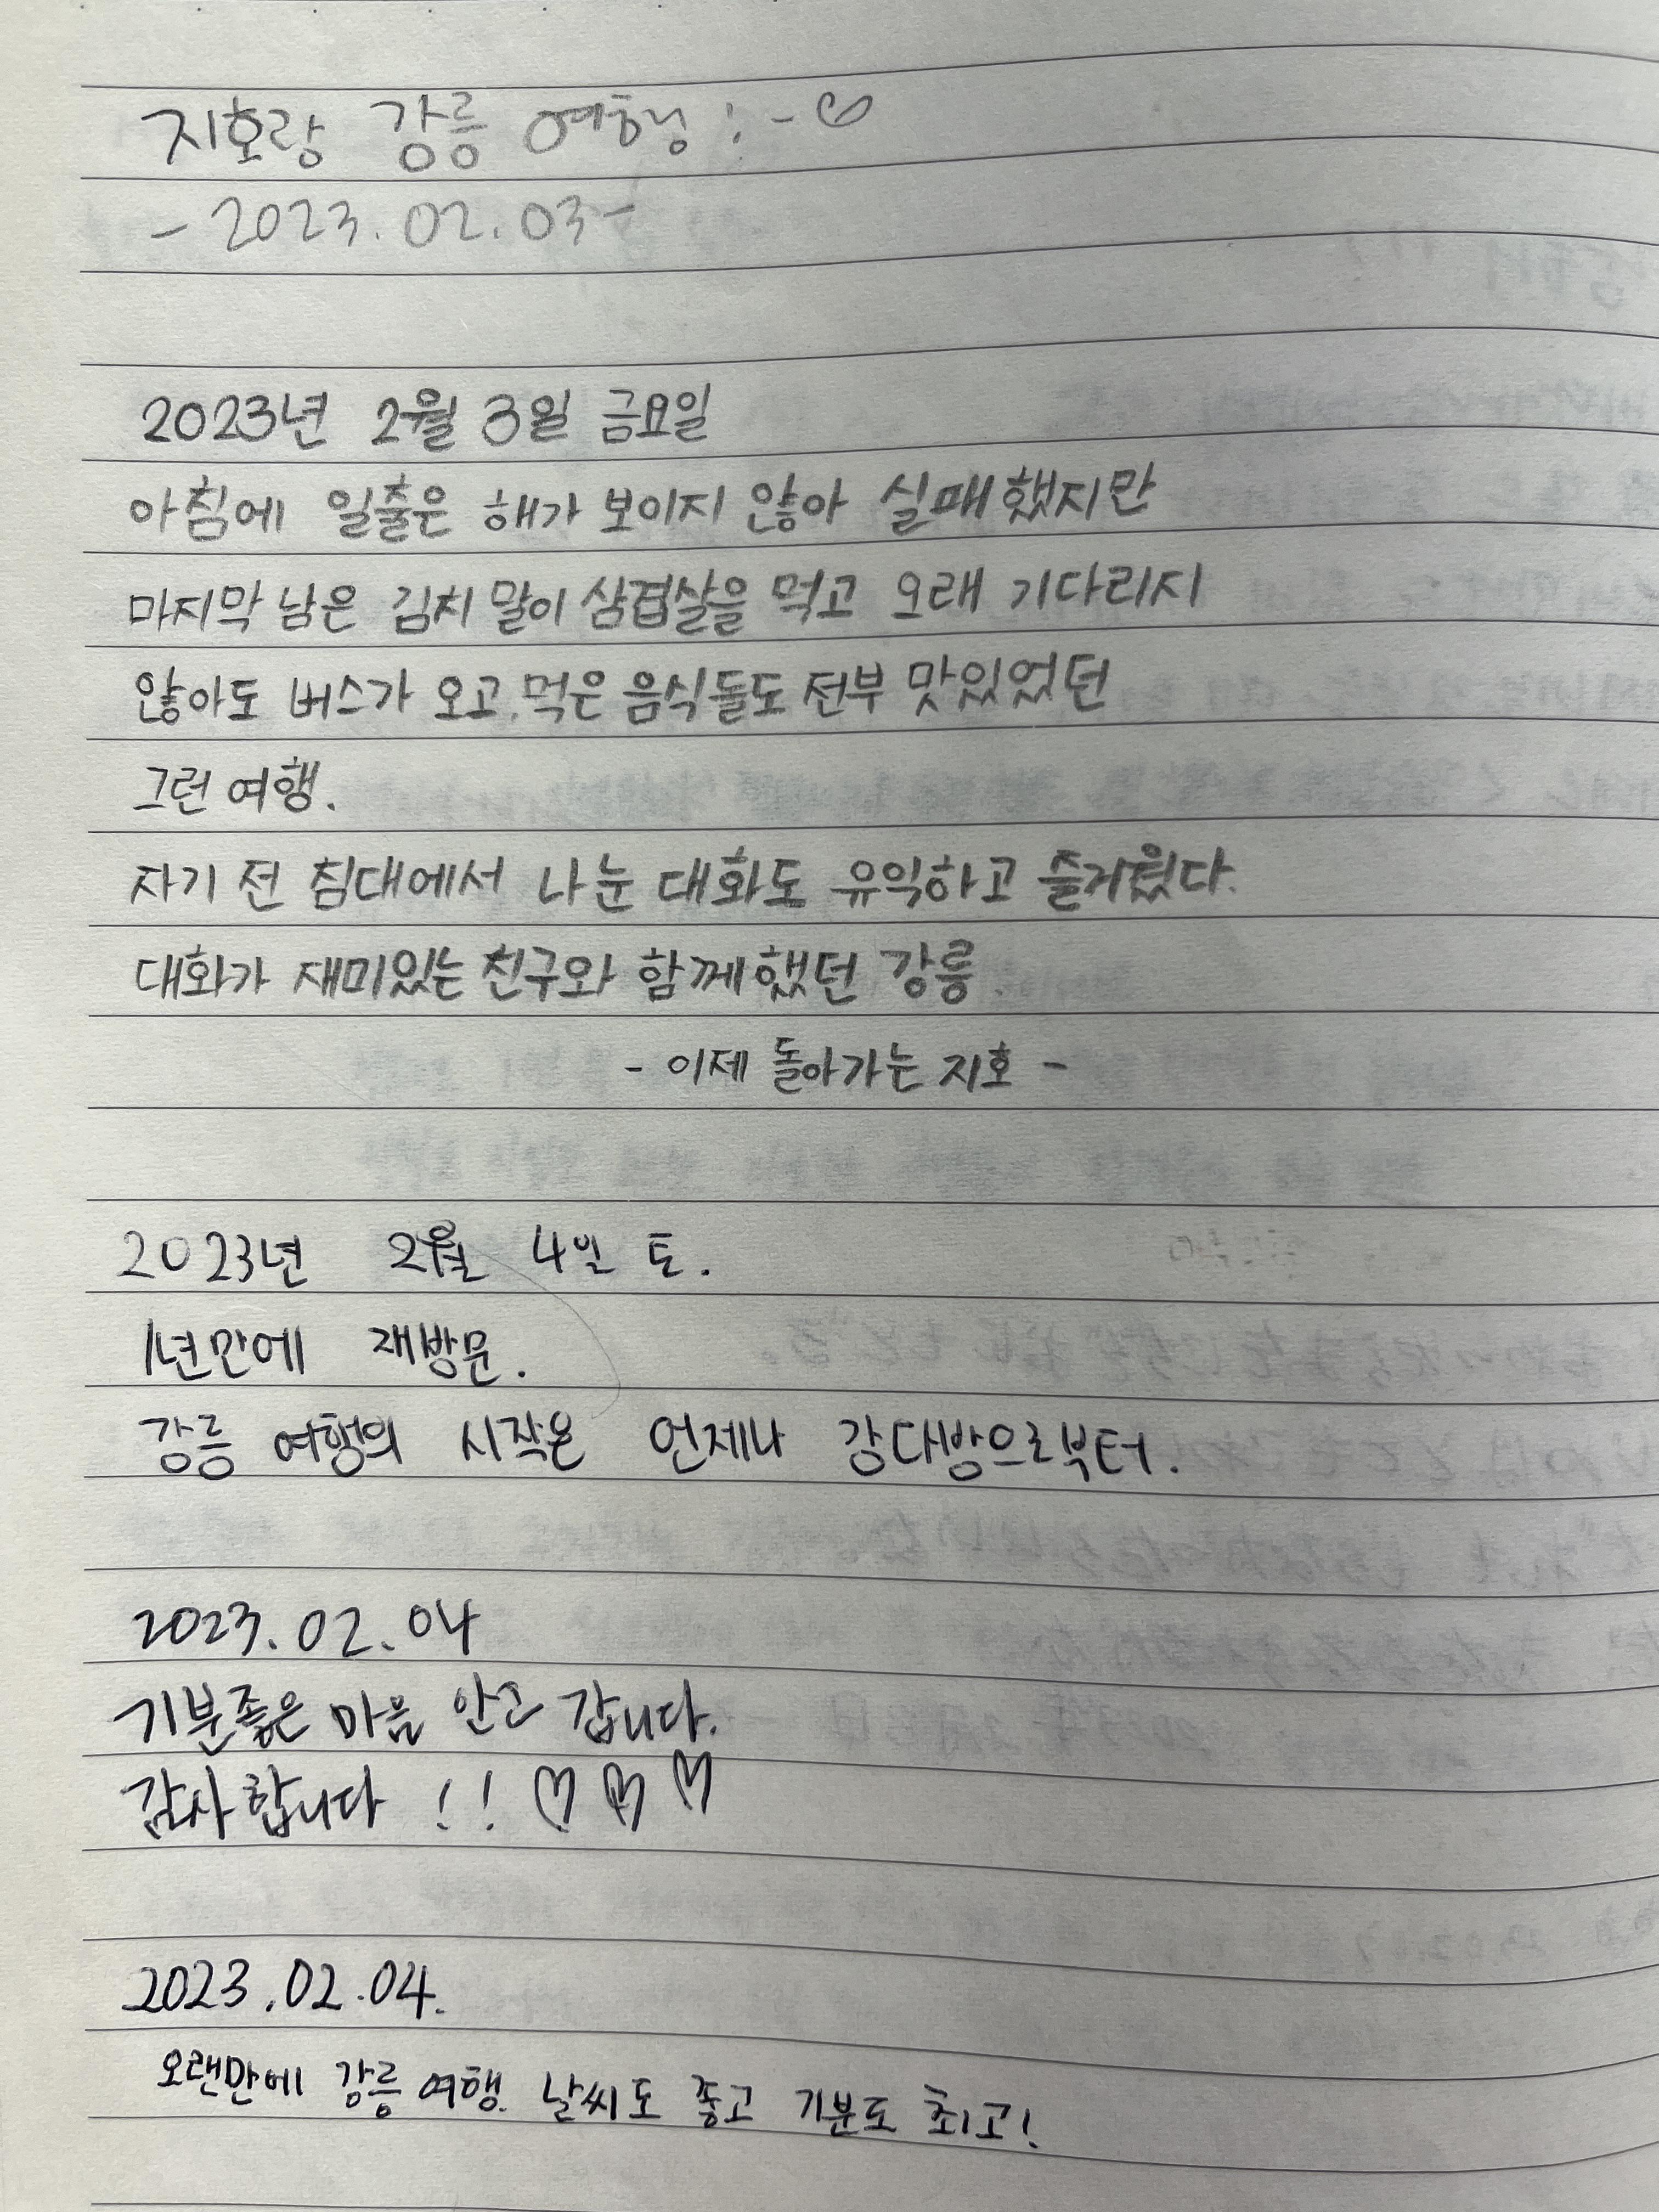 지호랑 강릉 여행 :-♡
- 2023.02.03 -
2023년 2월 3일 금요일
아침에 일출은 해가 보이지 않아 실패했지만
마지막 남은 김치말이 삼겹살을 먹고 오래 기다리지
않아도 버스가 오고, 먹은 음식들도 전부 맛있었던
그런 여행.
자기 전 침대에서 나눈 대화도 유익하고 즐거웠다.
대화가 재미있는 친구와 함께했던 강릉.
- 이제 돌아가는 지호 -
2023년 2월 4일 토.
1년만에 재방문.
강릉 여행의 시작은 언제나 강다방으로부터.
2023.02.04
기분좋은 마음 안고 갑니다.
감사합니다 !! ♡♡♡
2023.02.04.
오랜만에 강릉여행. 날씨도 좋고 기분도 최고!